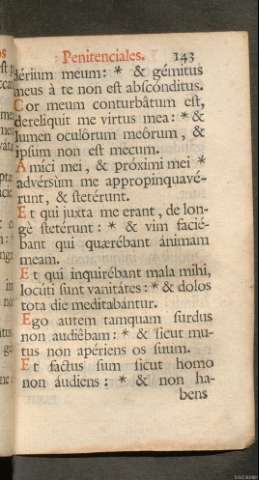 Penitenciales. 143
dérium meum: * & gémitus
meus à te non est abscónditus.
Cor meum conturbâtum est,
dereliquit me virtus mea: * &
lumen oculôrum meôrum, &
ipsum non est mecum.
Amíci mei, & próximi mei *
advérsùm me appropinquavé-
runt, & stetérunt.
Et qui juxta me erant, de lon-
gè stetérunt: * & vim facié-
bant qui quærébant ánimam
meam.
Et qui inquirébant mala mihi,
locúti sunt vanitátes: * & dolos
tota die meditabántur.
Ego autem tamquam surdus
non audiêbam: * & sicut mu-
tus non apériens os suum.
Et factus sum sicut homo
non áudiens: * & non ha-
bens